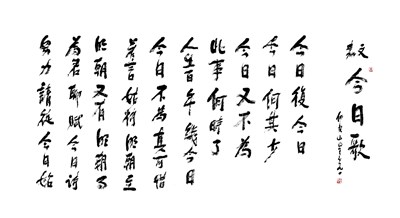 今日歌
今日復今日
今日何其少
今日又不為
此事何時了
人生百年幾今日
今日不為真可惜
若言姑待明朝至
明朝又有明朝事
為君聊賦今日詩
努力請從今日始